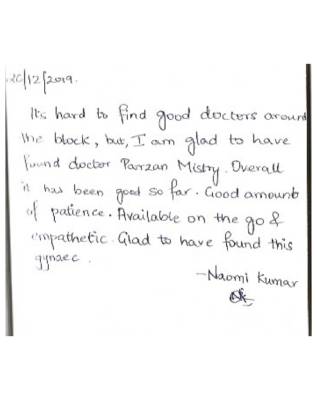 26/12/2019.
It's hard to find good doctors around
the block, but, I am glad to have
found doctor Parzan Mistry. Overall
it has been good so far. Good amount
of patience. Available on the go &
empathetic. Glad to have found this
gynaec.
-Naomi Kumar